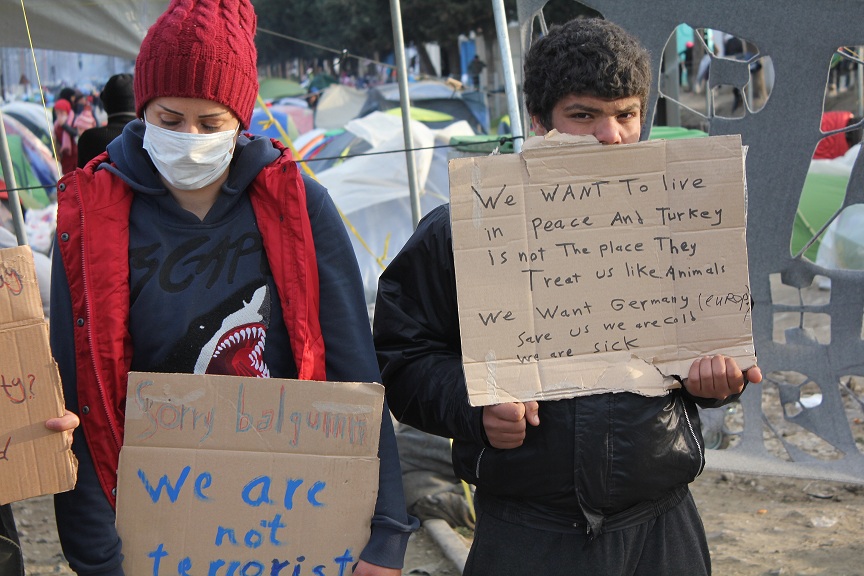 ty?
Sorry balgumn
We are
not
terrorist
3CAP
We WANT To live
in peace And Turkey
is not The place They
Treat us like Animals
We Want Germany (euROP)
save us we are cold
we are sick